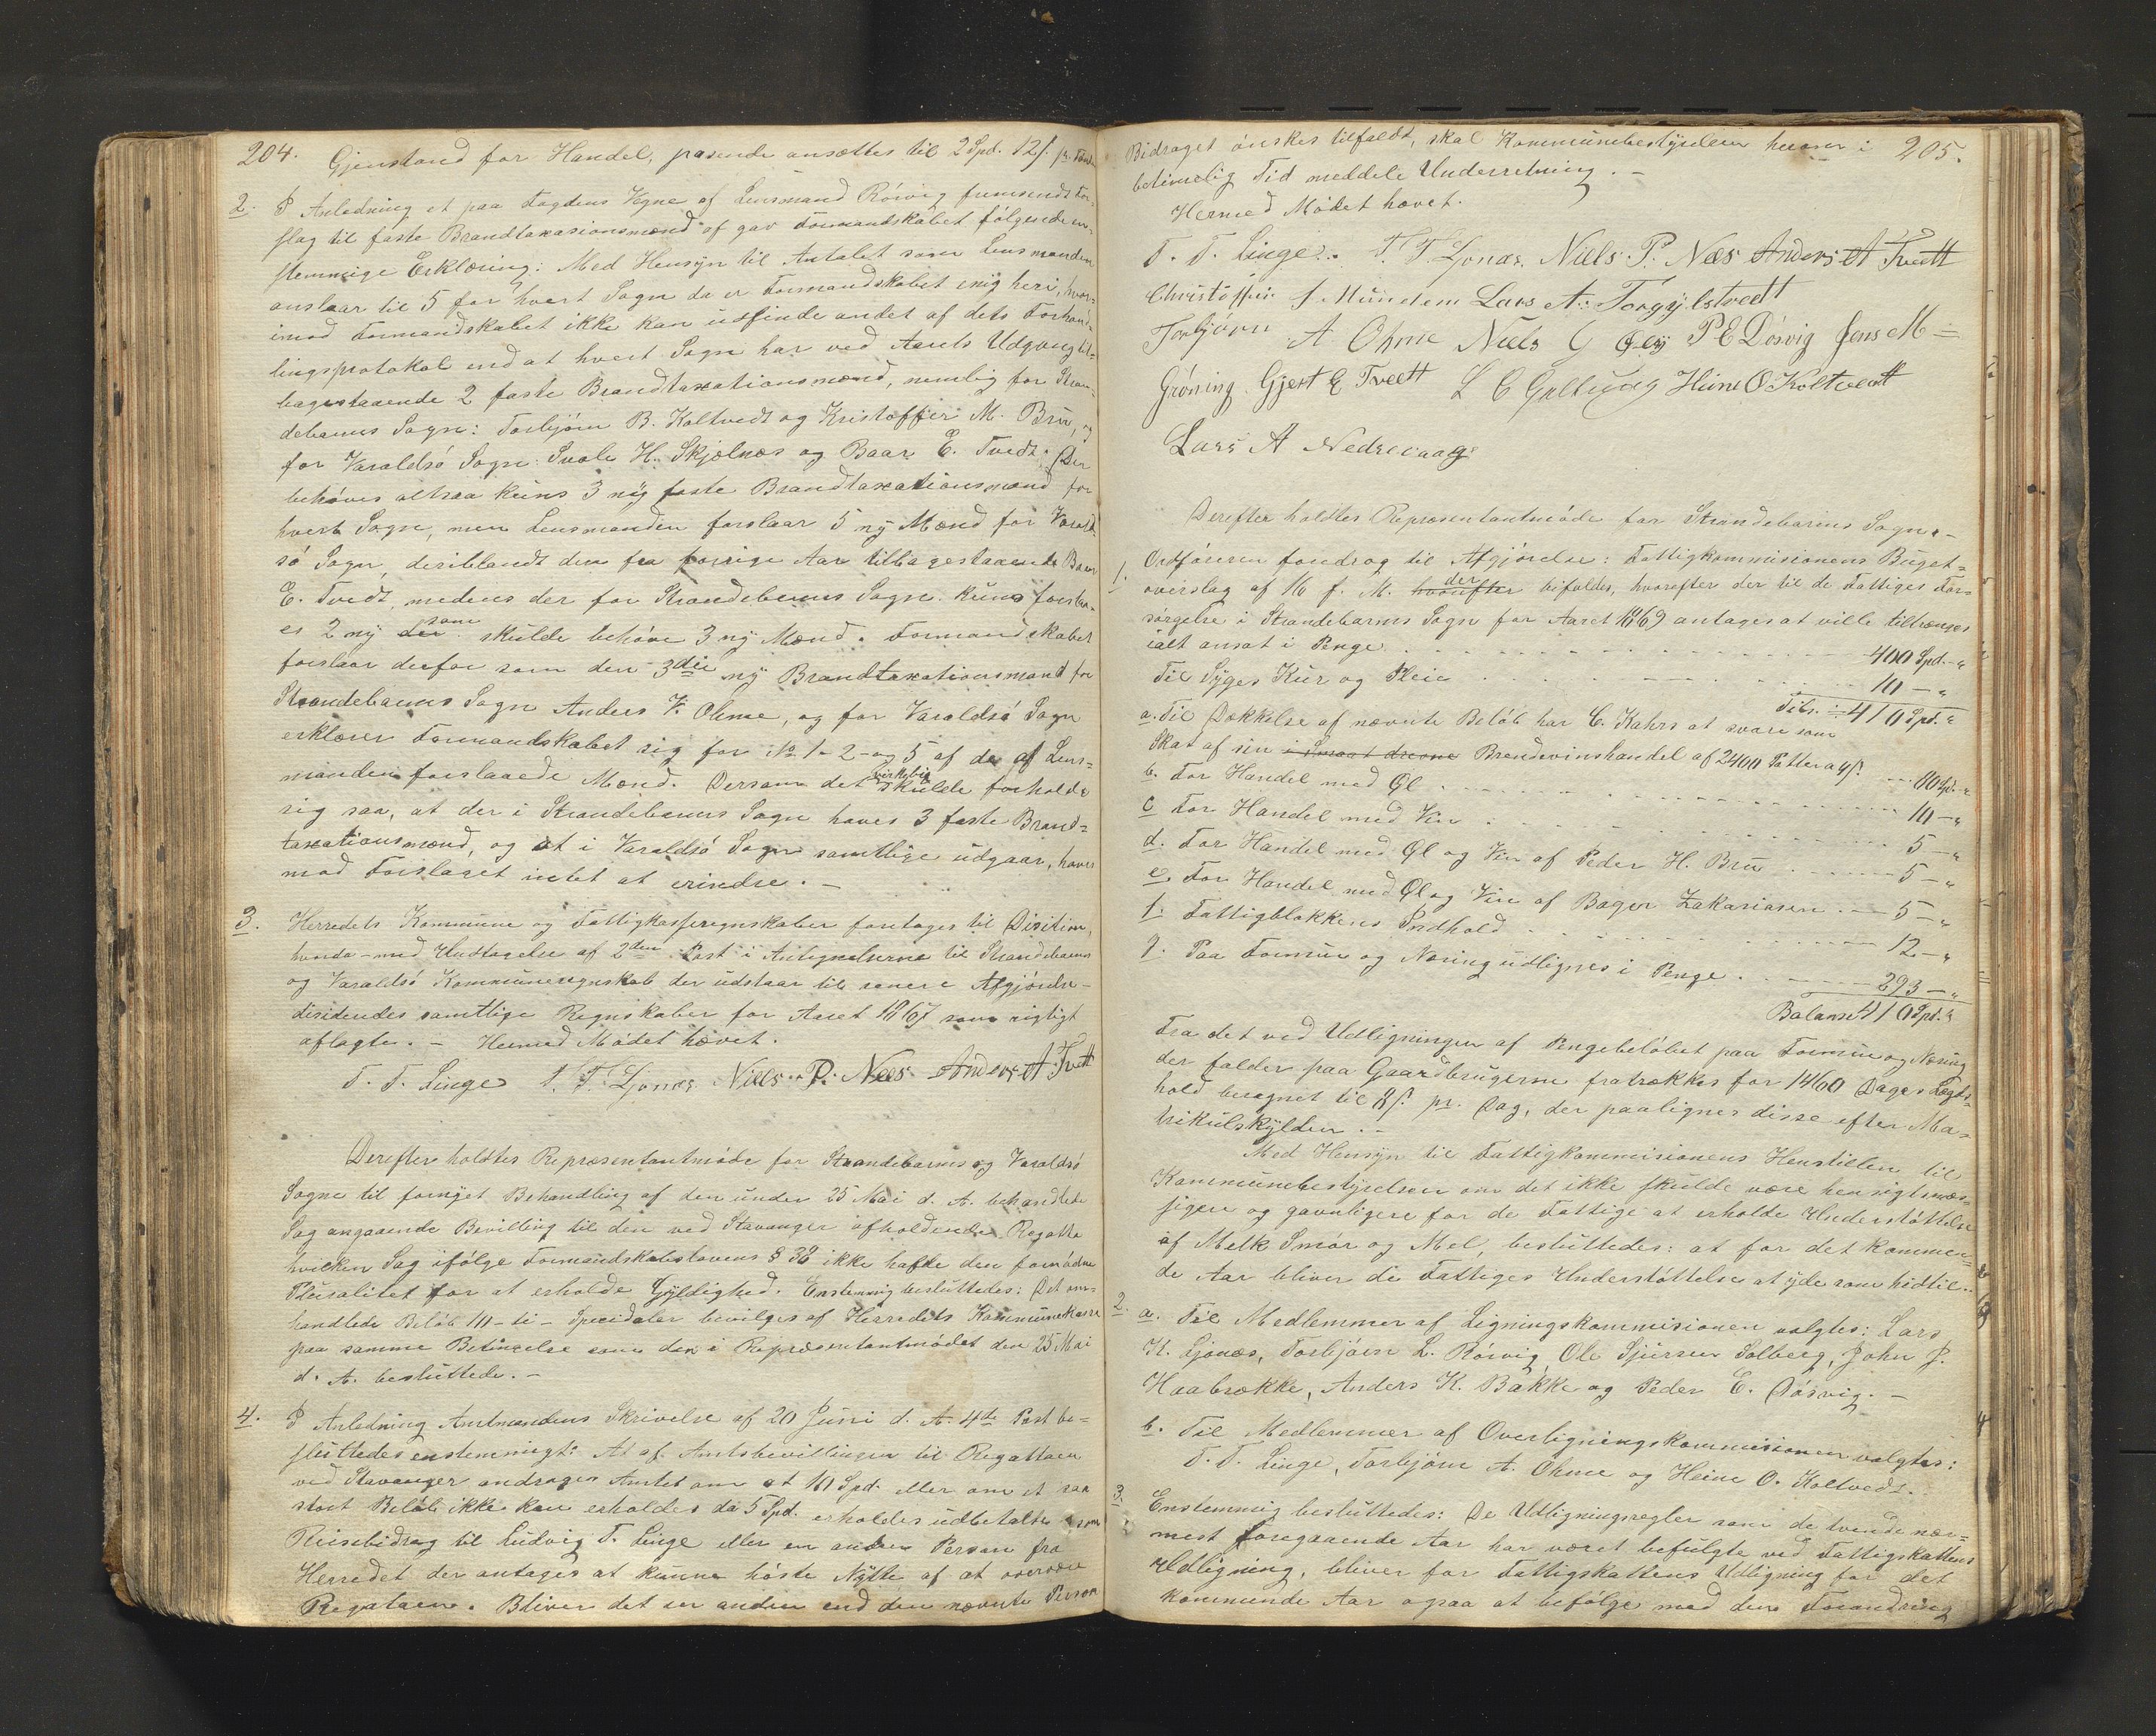 204.
Gjenstand for Handel, pasende ansættes til 2 Spd. 12 s. pr. Tønde
2. I Anledning et paa Fogdens Vegne af Lensmand Rösvig fremsendt For-
slag til faste Brandtaxasionsmænd af gav Formandskabet fölgende en-
stemmige Erklæring: Med Hensyn til Antalet som Lensmanden
anslaar til 5 for hvert Sogn da er Formandskabet enig heri, hvor-
imod Formandskabet ikke kan udfinde andet af dets Forhand-
lingsprotokol end at hvert Sogn har ved Aarets Udgang til-
bagestaaende 2 faste Brandtaxationsmænd, nemlig for Stran-
debarms Sogn: Torbjörn B. Koltvedt og Kristoffer M. Bru, og
for Varaldsö Sogn: Svale H. Skjelnæs og Baar E. Tvedt. Der
behöves altsaa kuns 3 ny faste Brandtaxationsmænd for
hvert Sogn, men Lensmanden forslaar 5 ny Mænd for Varald-
sö Sogn, deriblandt den fra forrige Aar tilbagestaaende Baar
E. Tvedt, medens der for Strandebarms Sogn kuns forslaa-
es 2 ny der som skulde behöve 3 ny Mænd. Formandskabet
forslaar derfor som den 3die ny Brandtaxationsmand for
Strandebarms Sogn Anders V. Ohme, og for Varaldsö Sogn
erklærer Formandskabet sig for No 1- 2- og 5 af de af Lens-
manden forslaaede Mænd. Dersom det virkelig skulde forholde
sig saa, at der i Strandebarms Sogn haves 3 faste Brand-
taxationsmænd, og at i Varaldsö Sogn samtlige udgaar, haves
mod Forslaget intet at erindre. -
3. Herredets Kommune og Fattigkasseregnskaber foretages til Disition,
hvorda - med Undtagelse af 2den Post i Antegnelserne til Strandebarms
og Varaldsö Kommuneregnskab der udstaar til senere Afgjörelse -
disidendes samtlige Regnskaber for Aaret 1867 som rigtigt
aflagte. - Hermed Mödet hævet.
T. T. Linge T. T. Ljonæs Niels P. Næs Anders A Tvett
Derefter holdtes Repræsentantmöde for Strandebarms og Varaldsö
Sogne til fornyet Behandling af den under 25 Mai d. A. behandlede
Sag angaaende Bevilling til den ved Stavanger afholdende Regatta
hvilken Sag ifölge Formandskabslovens § 38 ikke hafde den fornödne
Pluralitet for at erholde Gyldighed. Enstemmig besluttedes: Det om-
handlede Belöb 10 - ti - Specidaler bevilges af Herredets Kommunekasse
paa samme Betingelse som den i Repræsentantmödet den 25 Mai
d. A. besluttede. -
4. I Anledning Amtmandens Skrivelse af 20 Juni d. A. 4de Post be-
sluttedes enstemmigt: At af Amtsbevillingen til Regattaen
ved Stavanger andrages Amtet om at 10 Spd. eller om et saa
stort Belöb ikke kan erholdes da 5 Spd. erholdes udbetalte som
Reisebidrag til Ludvig T. Linge eller en anden Person fra
Herredet der antages at kunne höste Nytte af at overvære
Regataen. Bliver det en anden end den nævnte Person
205.
Bidraget önskes tilfaldt, skal Kommunebestyrelsen herom i
betimelig Tid meddele Underretning. -
Hermed Mödet hævet.
T. T. Linge. T. T. Ljonæs. Niels P. Næs Anders A Tvett
Christoffer J Mundem Lars A. Torgylstvedt
Torbjörn A Ohme Niels P E Dösvig Jens M =
Gröning Gjert E Tveett L C Galtung Hüne O Koltvedt
Lars A Nedrevaag
Derefter holdtes Repræsentantmöde for Strandebarms Sogn. -
1. Ordföreren foredrog til Afgjörelse: Fattigkommisionens Buget-
overslag af 16 f. M. hvorefter der bifaldes, hvorefter der til de Fattiges For-
sörgelse i Strandebarms Sogn for Aaret 1869 antages at ville tiltrænges
ialt ansat i Penge . . . 400 Spd. - "
Til Syges Kur og Pleie . . . 10 - "
Tils. = 410 Spd. "
a. Til Dækkelse af nævnte Belöb har C. Kahrs at svare som
Skat af sin i Smaat drevne Brændevinshandel af 2400 Potter a 4 s. --- 80 Spd. "
b. For Handel med Øl . . . 10 - "
c For Handel med Vin . . . 5 - "
d. For Handel med Øl og Vin af Peder H. Bru . . . 5 - "
e. For Handel med Øl og Vin af Bager Zakariasen . - 5 - "
f. Fattigblokkens Indhold . . . 12 - "
g. Paa Formue og Næring udlignes i Penge . . . 293 - "
Balanse 410 Spd. "
Fra det ved Udligningen af Pengebelöbet paa Formue og Næring
der falder paa Gaardbrugerne fratrækkes for 1460 Dages Lægds-
hold beregnet til 8 s. pr. Dag, der paalignes disse efter Ma-
trikulskylden. -
Med Hensyn til Fattigkommisionens Henstillen til
Kommunebestyrelsen om det ikke skulde være hensigtsmæs-
sigere og gavnligere for de Fattige at erholde Understöttelse
af Melk Smör og Mel, besluttedes: at for det kommen-
de Aar bliver de Fattiges Understöttelse at yde som hidtil.
2. a. Til Medlemmer af Ligningskommisionen valgtes: Lars
K. Ljonæs, Torbjörn L. Rösvig, Ole Sjursen Solberg, John J.
Haabrække, Anders K. Bakke og Peder E. Dösvig. -
b. Til Medlemmer af Overligningskommisionen valgtes:
T. T. Linge, Torbjörn A. Ohme og Heine O. Koltvedt.
3. Enstemmig besluttedes: De Udligningsregler som de tvende nær-
mest foregaaende Aar har været befulgte ved Fattigskattens
Udligning, bliver for Fattigskattens Udligning for det
kommende Aar ogsaa at befölge med den Forandring